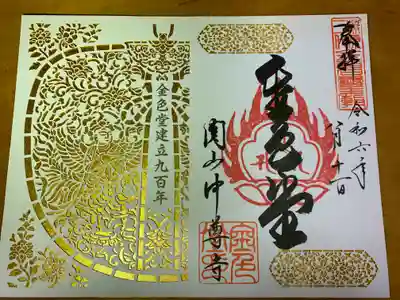 奉拝
令和六年
金色堂
関山中尊寺
金色堂建立九百年